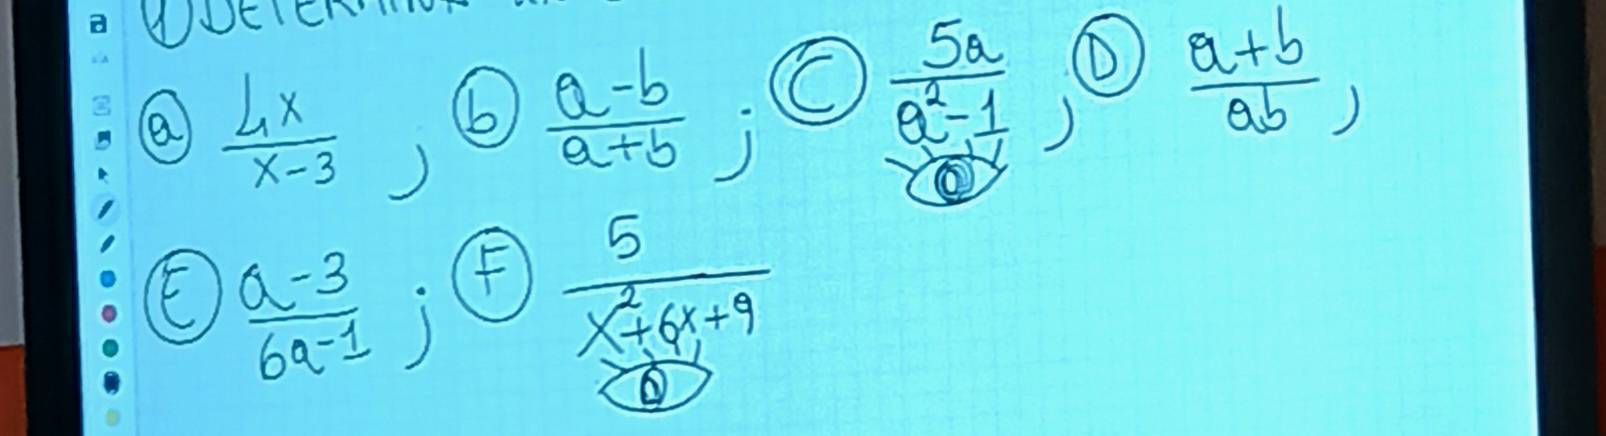 ① DETERMINA
ⓐ 4x/(x-3) ; ⓑ (a-b)/(a+b) ; Ⓒ 5a/(a²-1) ; Ⓓ (a+b)/(ab) ;
Ⓔ (a-3)/(6a-1) ; Ⓕ 5/(x²+6x+9)